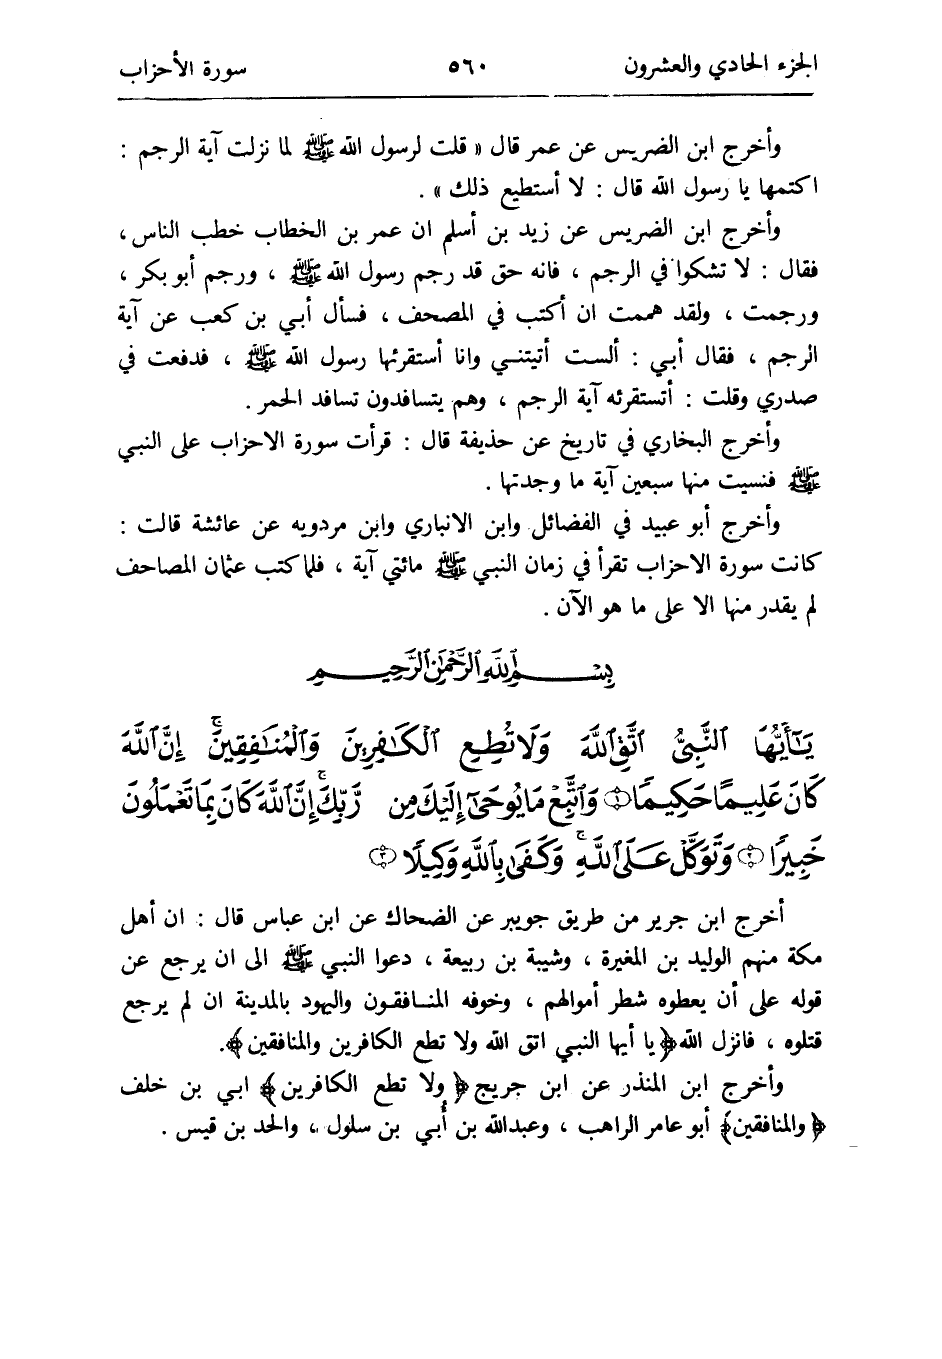 الجزء الحادي والعشرون ٥٦٠ سورة الأحزاب
وأخرج ابن الضريس عن عمر قال « قلت لرسول الله ﷺ لما نزلت آية الرجم :
اكتمها يا رسول الله قال : لا أستطيع ذلك » .
وأخرج ابن الضريس عن زيد بن أسلم ان عمر بن الخطاب خطب الناس ،
فقال : لا تشكوا في الرجم ، فانه حق قد رجم رسول الله ﷺ ، ورجم أبو بكر ،
ورجمت ، ولقد هممت ان أكتب في المصحف ، فسأل أبي بن كعب عن آية
الرجم ، فقال أبي : ألست أتيتني وانا أستقرئها رسول الله ﷺ ، فدفعت في
صدري وقلت : أتستقرئه آية الرجم ، وهم يتسافدون تسافد الحمر .
وأخرج البخاري في تاريخ عن حذيفة قال : قرأت سورة الاحزاب على النبي
ﷺ فنسيت منها سبعين آية ما وجدتها .
وأخرج أبو عبيد في الفضائل وابن الانباري وابن مردويه عن عائشة قالت :
كانت سورة الاحزاب تقرأ في زمان النبي ﷺ مائتي آية ، فلما كتب عثمان المصاحف
لم يقدر منها الا على ما هو الآن .
بِسْمِ ٱللَّهِ ٱلرَّحْمَٰنِ ٱلرَّحِيمِ
يَٰٓأَيُّهَا ٱلنَّبِيُّ ٱتَّقِ ٱللَّهَ وَلَا تُطِعِ ٱلْكَٰفِرِينَ وَٱلْمُنَٰفِقِينَۗ إِنَّ ٱللَّهَ
كَانَ عَلِيمًا حَكِيمًا ۝١ وَٱتَّبِعْ مَا يُوحَىٰٓ إِلَيْكَ مِن رَّبِّكَۚ إِنَّ ٱللَّهَ كَانَ بِمَا تَعْمَلُونَ
خَبِيرًا ۝٢ وَتَوَكَّلْ عَلَى ٱللَّهِۚ وَكَفَىٰ بِٱللَّهِ وَكِيلًا ۝٣
أخرج ابن جرير من طريق جويبر عن الضحاك عن ابن عباس قال : ان أهل
مكة منهم الوليد بن المغيرة ، وشيبة بن ربيعة ، دعوا النبي ﷺ الى ان يرجع عن
قوله على أن يعطوه شطر أموالهم ، وخوفه المنافقون واليهود بالمدينة ان لم يرجع
قتلوه ، فانزل الله ﴿يا أيها النبي اتق الله ولا تطع الكافرين والمنافقين﴾.
وأخرج ابن المنذر عن ابن جريج ﴿ولا تطع الكافرين﴾ ابي بن خلف
﴿والمنافقين﴾ أبو عامر الراهب ، وعبدالله بن أُبي بن سلول ، والجد بن قيس .